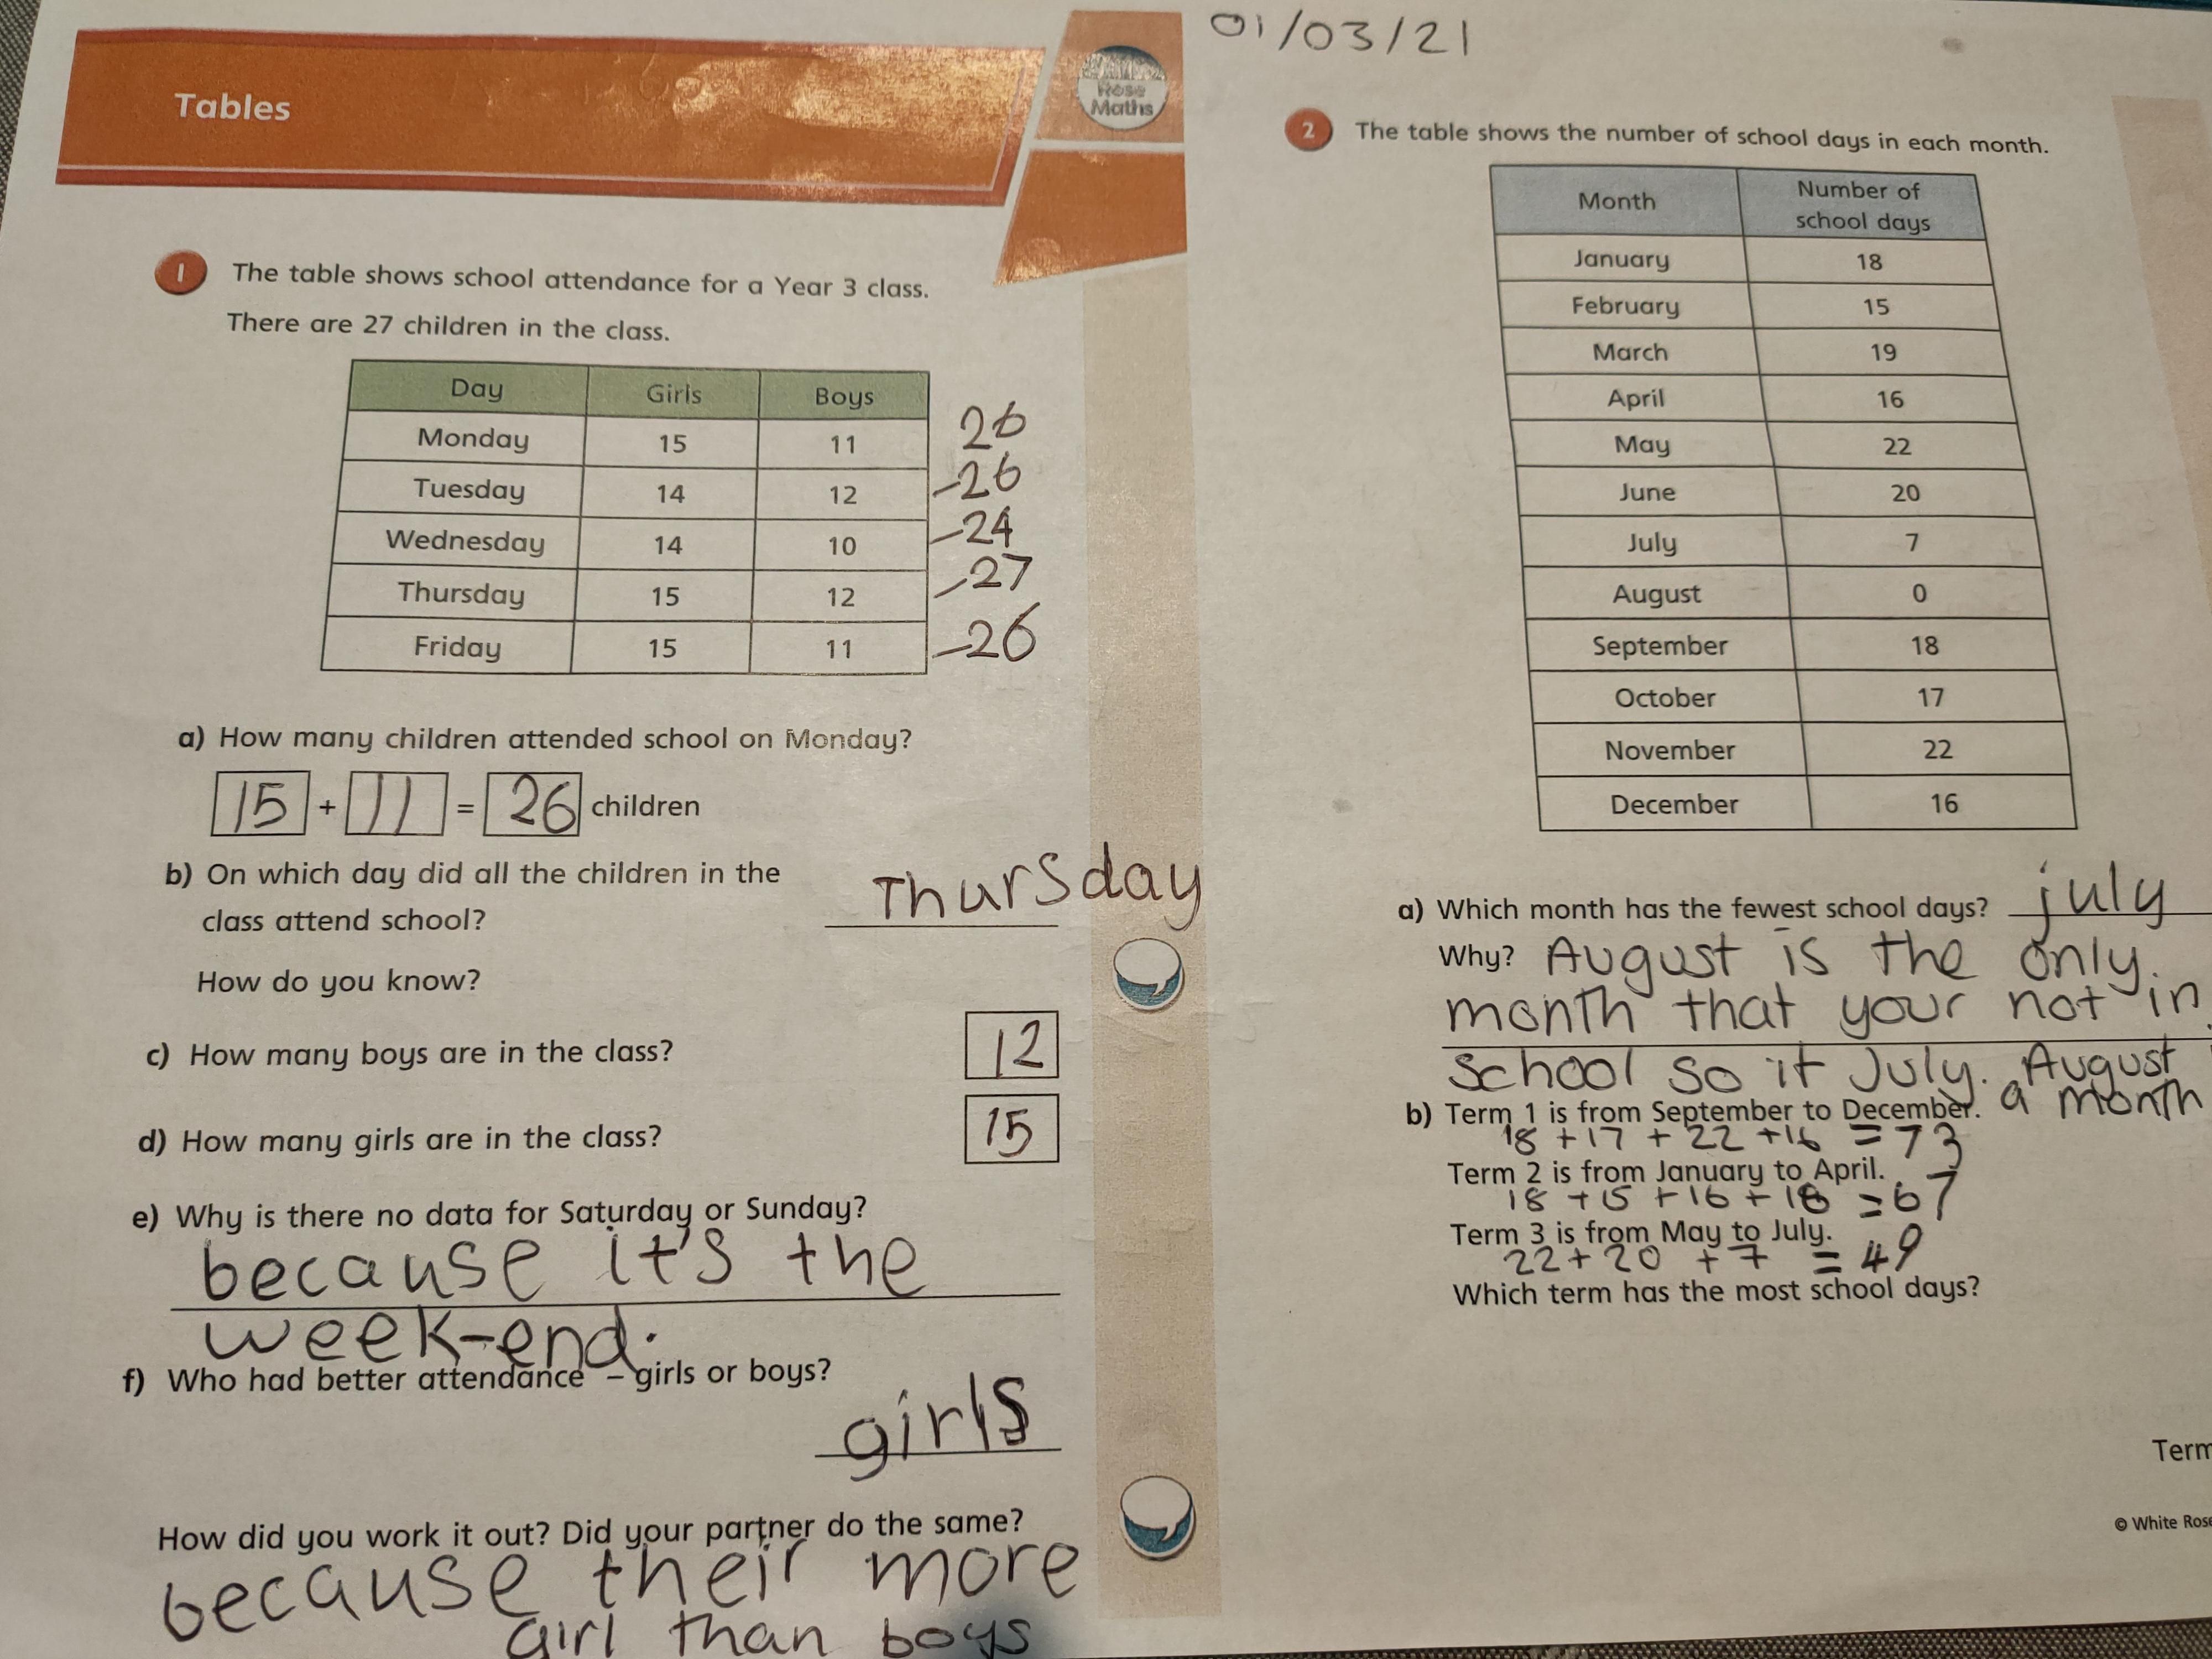 01/03/21
Tables
Rose
Maths
1 The table shows school attendance for a Year 3 class.
There are 27 children in the class.
Day Girls Boys
Monday 15 11 26
Tuesday 14 12 -26
Wednesday 14 10 -24
Thursday 15 12 -27
Friday 15 11 -26
a) How many children attended school on Monday?
15 + 11 = 26 children
b) On which day did all the children in the
class attend school? Thursday
How do you know?
c) How many boys are in the class? 12
d) How many girls are in the class? 15
e) Why is there no data for Saturday or Sunday?
because it's the
week-end.
f) Who had better attendance – girls or boys?
girls
How did you work it out? Did your partner do the same?
because their more
girl than boys
2 The table shows the number of school days in each month.
Month Number of
school days
January 18
February 15
March 19
April 16
May 22
June 20
July 7
August 0
September 18
October 17
November 22
December 16
a) Which month has the fewest school days? july
Why? August is the only.
month that your not in
school so it July. August
a month
b) Term 1 is from September to December.
18 + 17 + 22 + 16 = 73
Term 2 is from January to April.
18 + 15 + 16 + 18 = 67
Term 3 is from May to July.
22 + 20 + 7 = 49
Which term has the most school days?
Term
© White Rose